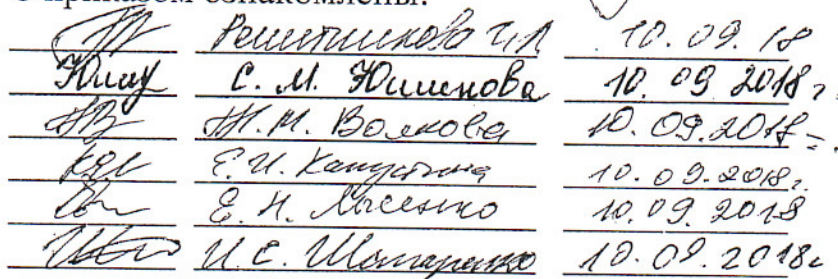 С приказом ознакомлены:
Решетникова 10.09.18
С. М. Юшенова 10.09 2018г
Н. М. Волкова 10.09.2018г.
Е. И. Капустина 10.09.2018г
Е. Н. Лысенко 10.09.2018
И. С. Шапаренко 10.09.2018г